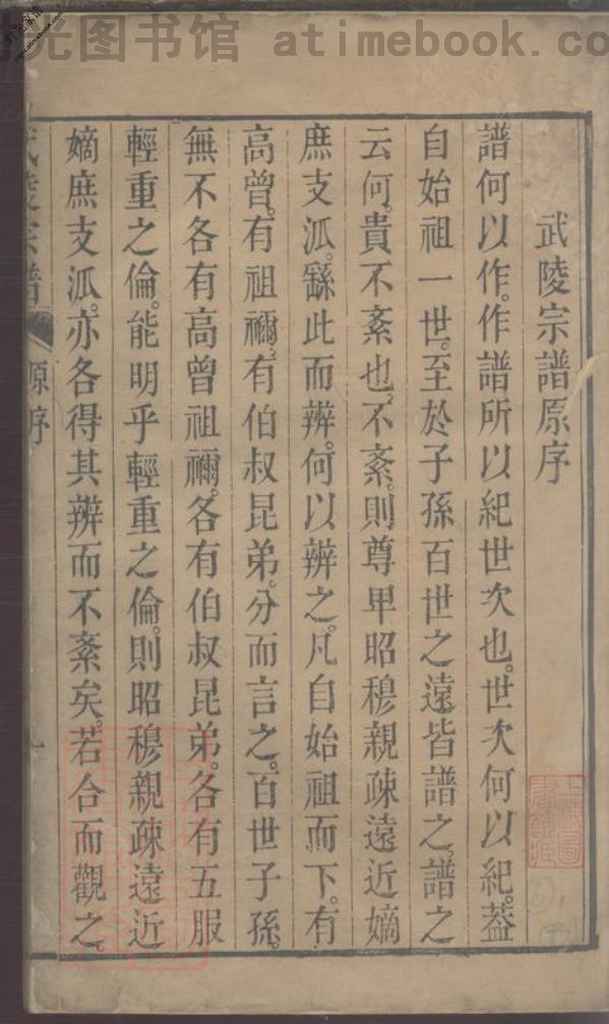 光图书馆 atimebook.co
武陵宗譜原序
譜何以作。作譜所以紀世次也。世次何以紀。葢
自始祖一世。至於子孫百世之遠。皆譜之。譜之
云何。貴不紊也。不紊。則尊卑昭穆親疎遠近嫡
庶支泒。繇此而辨。何以辨之。凡自始祖而下。有
高曾。有祖禰。有伯叔昆弟。分而言之。百世子孫。
無不各有高曾祖禰。各有伯叔昆弟。各有五服
輕重之倫。能明乎輕重之倫。則昭穆親疎遠近
嫡庶支泒。亦各得其辨而不紊矣。若合而觀之。
武陵宗譜 原序 一